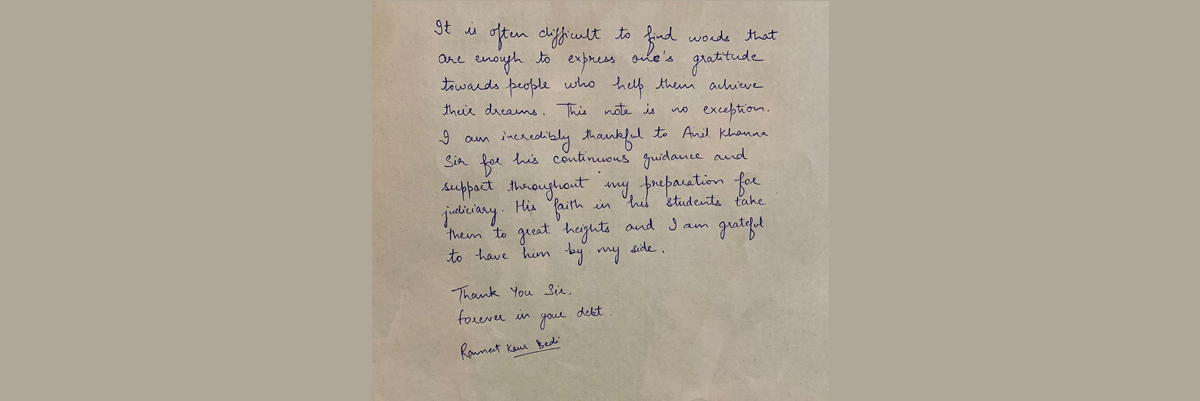 It is often difficult to find words that
are enough to express one's gratitude
towards people who help them achieve
their dreams. This note is no exception.
I am incredibly thankful to Anil Khanna
Sir for his continuous guidance and
support throughout my preparation for
judiciary. His faith in his students take
them to great heights and I am grateful
to have him by my side.
Thank You Sir.
forever in your debt.
Kaur Bedi